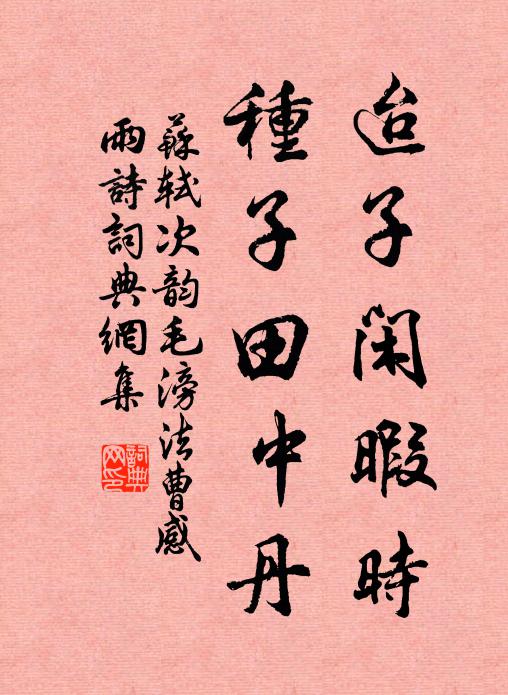 迨子閑暇時
種子田中丹
蘇軾次韵毛滂法曹感
雨詩詞典網集
詞典网印